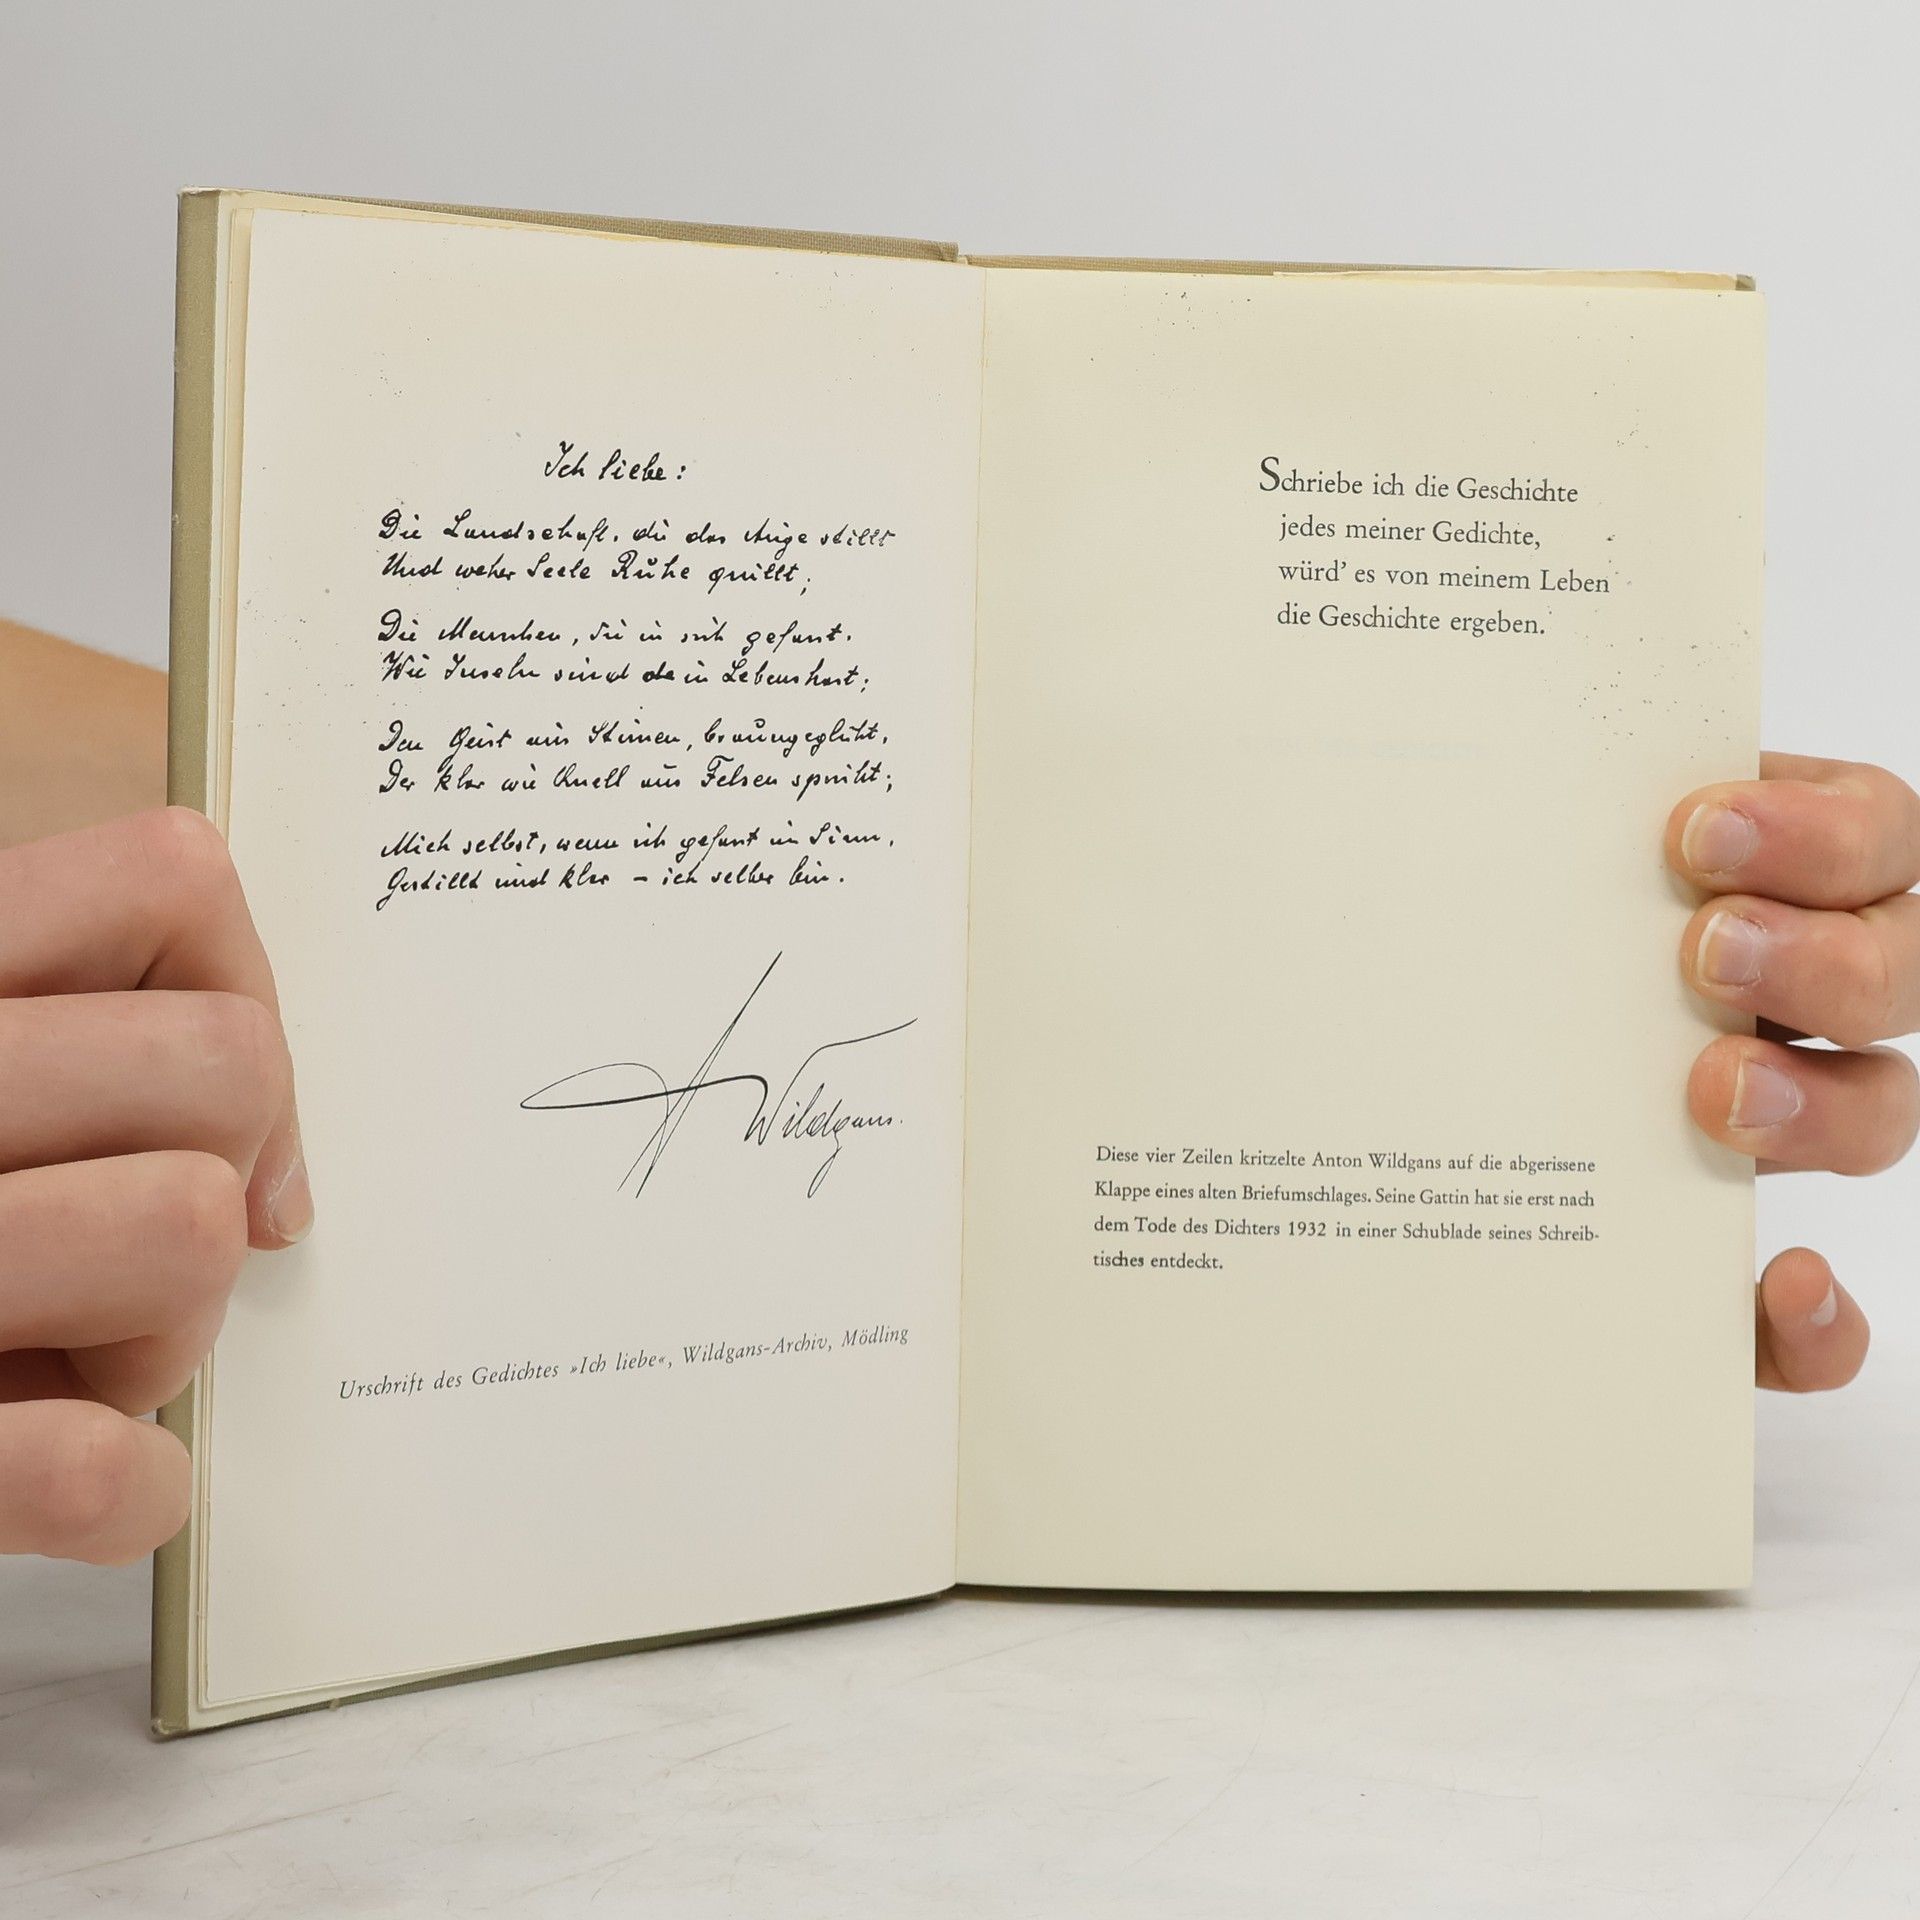 Ich liebe:
Die Landschaft, die das Auge stillt
Und weher Seele Ruhe quillt;
Die Menschen, die in sich gefasst,
Wie Inseln sind da in Lebenshast;
Den Geist aus Stirnen,
Der klar wie Quell aus Felsen sprüht;
Mich selbst, wenn ich gefasst im Sinn,
Gestillt und klar – ich selber bin.
A Wildgans.
Urschrift des Gedichtes »Ich liebe«, Wildgans-Archiv, Mödling
Schriebe ich die Geschichte
jedes meiner Gedichte,
würd' es von meinem Leben
die Geschichte ergeben.
Diese vier Zeilen kritzelte Anton Wildgans auf die abgerissene
Klappe eines alten Briefumschlages. Seine Gattin hat sie erst nach
dem Tode des Dichters 1932 in einer Schublade seines Schreib-
tisches entdeckt.